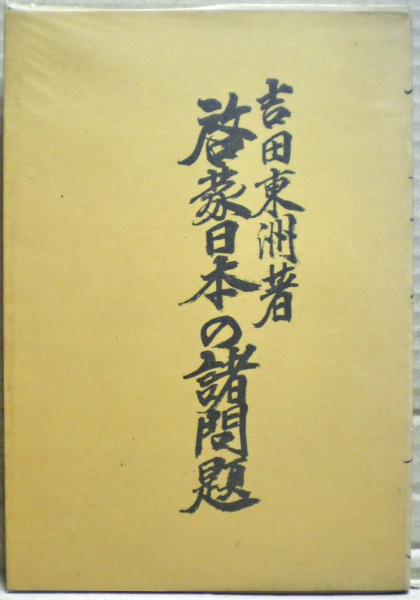 吉田東洲著
啓蒙日本の諸問題